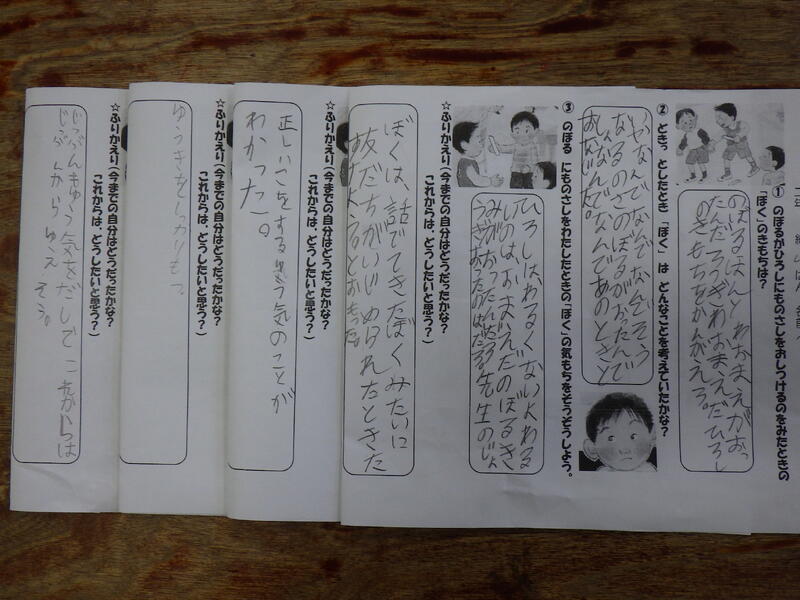 ① のぼるがひろしにものさしをおしつけるのをみたときの
「ぼく」のきもちは?
のぼるほんと わおまえがおっ
たんだろぎわおまえだひろし
のきもちをかんがえろ。
② どきっとしたとき「ぼく」は どんなことを考えていたかな?
いやなんでなんでなんでそう
なるのさのぼるがおたんで
しょなんでなんであのときと
おなじなんだ。
③ のぼる にものさしをわたしたときの「ぼく」の気もちをそうぞうしよう。
ひろしはわるくないよわる
いのはおまえだのぼるき
みがおったんだろ先生のじょ
うぎおったのはだろ
☆ふりかえり(今までの自分はどうだったかな?
これからは、どうしたいと思う?)
ぼくは、話ででてきたぼくみたいに
友だちがいじめられたときた
すけようとおもった。
☆ふりかえり(今までの自分はどうだったかな?
これからは、どうしたいと思う?)
正しいことをするゆう気のことが
わかった。
☆ふりかえり(今までの自分はどうだったかな?
これからは、どうしたいと思う?)
ゆうきをしっかりもつ
☆ふりかえり(今までの自分はどうだったかな?
これからは、どうしたいと思う?)
じぶんもゆう気をだしてこれからは
じぶんからゆえそう。